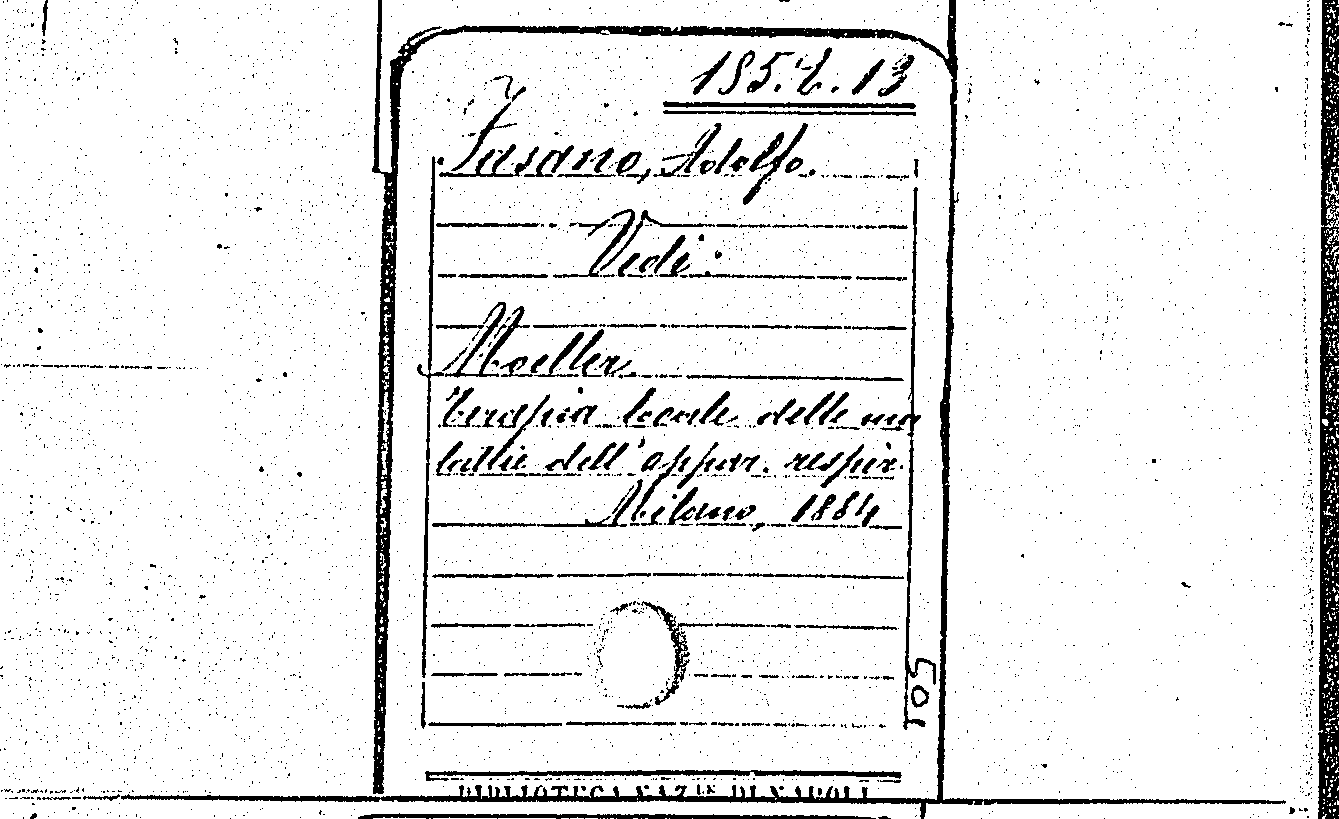 185.L.13
Fasano, Adolfo.
Vedi:
Moeller
Terapia locale delle ma
lattie dell'appar. respir.
Milano, 1884
BIBLIOTECA NAZ.LE DI NAPOLI